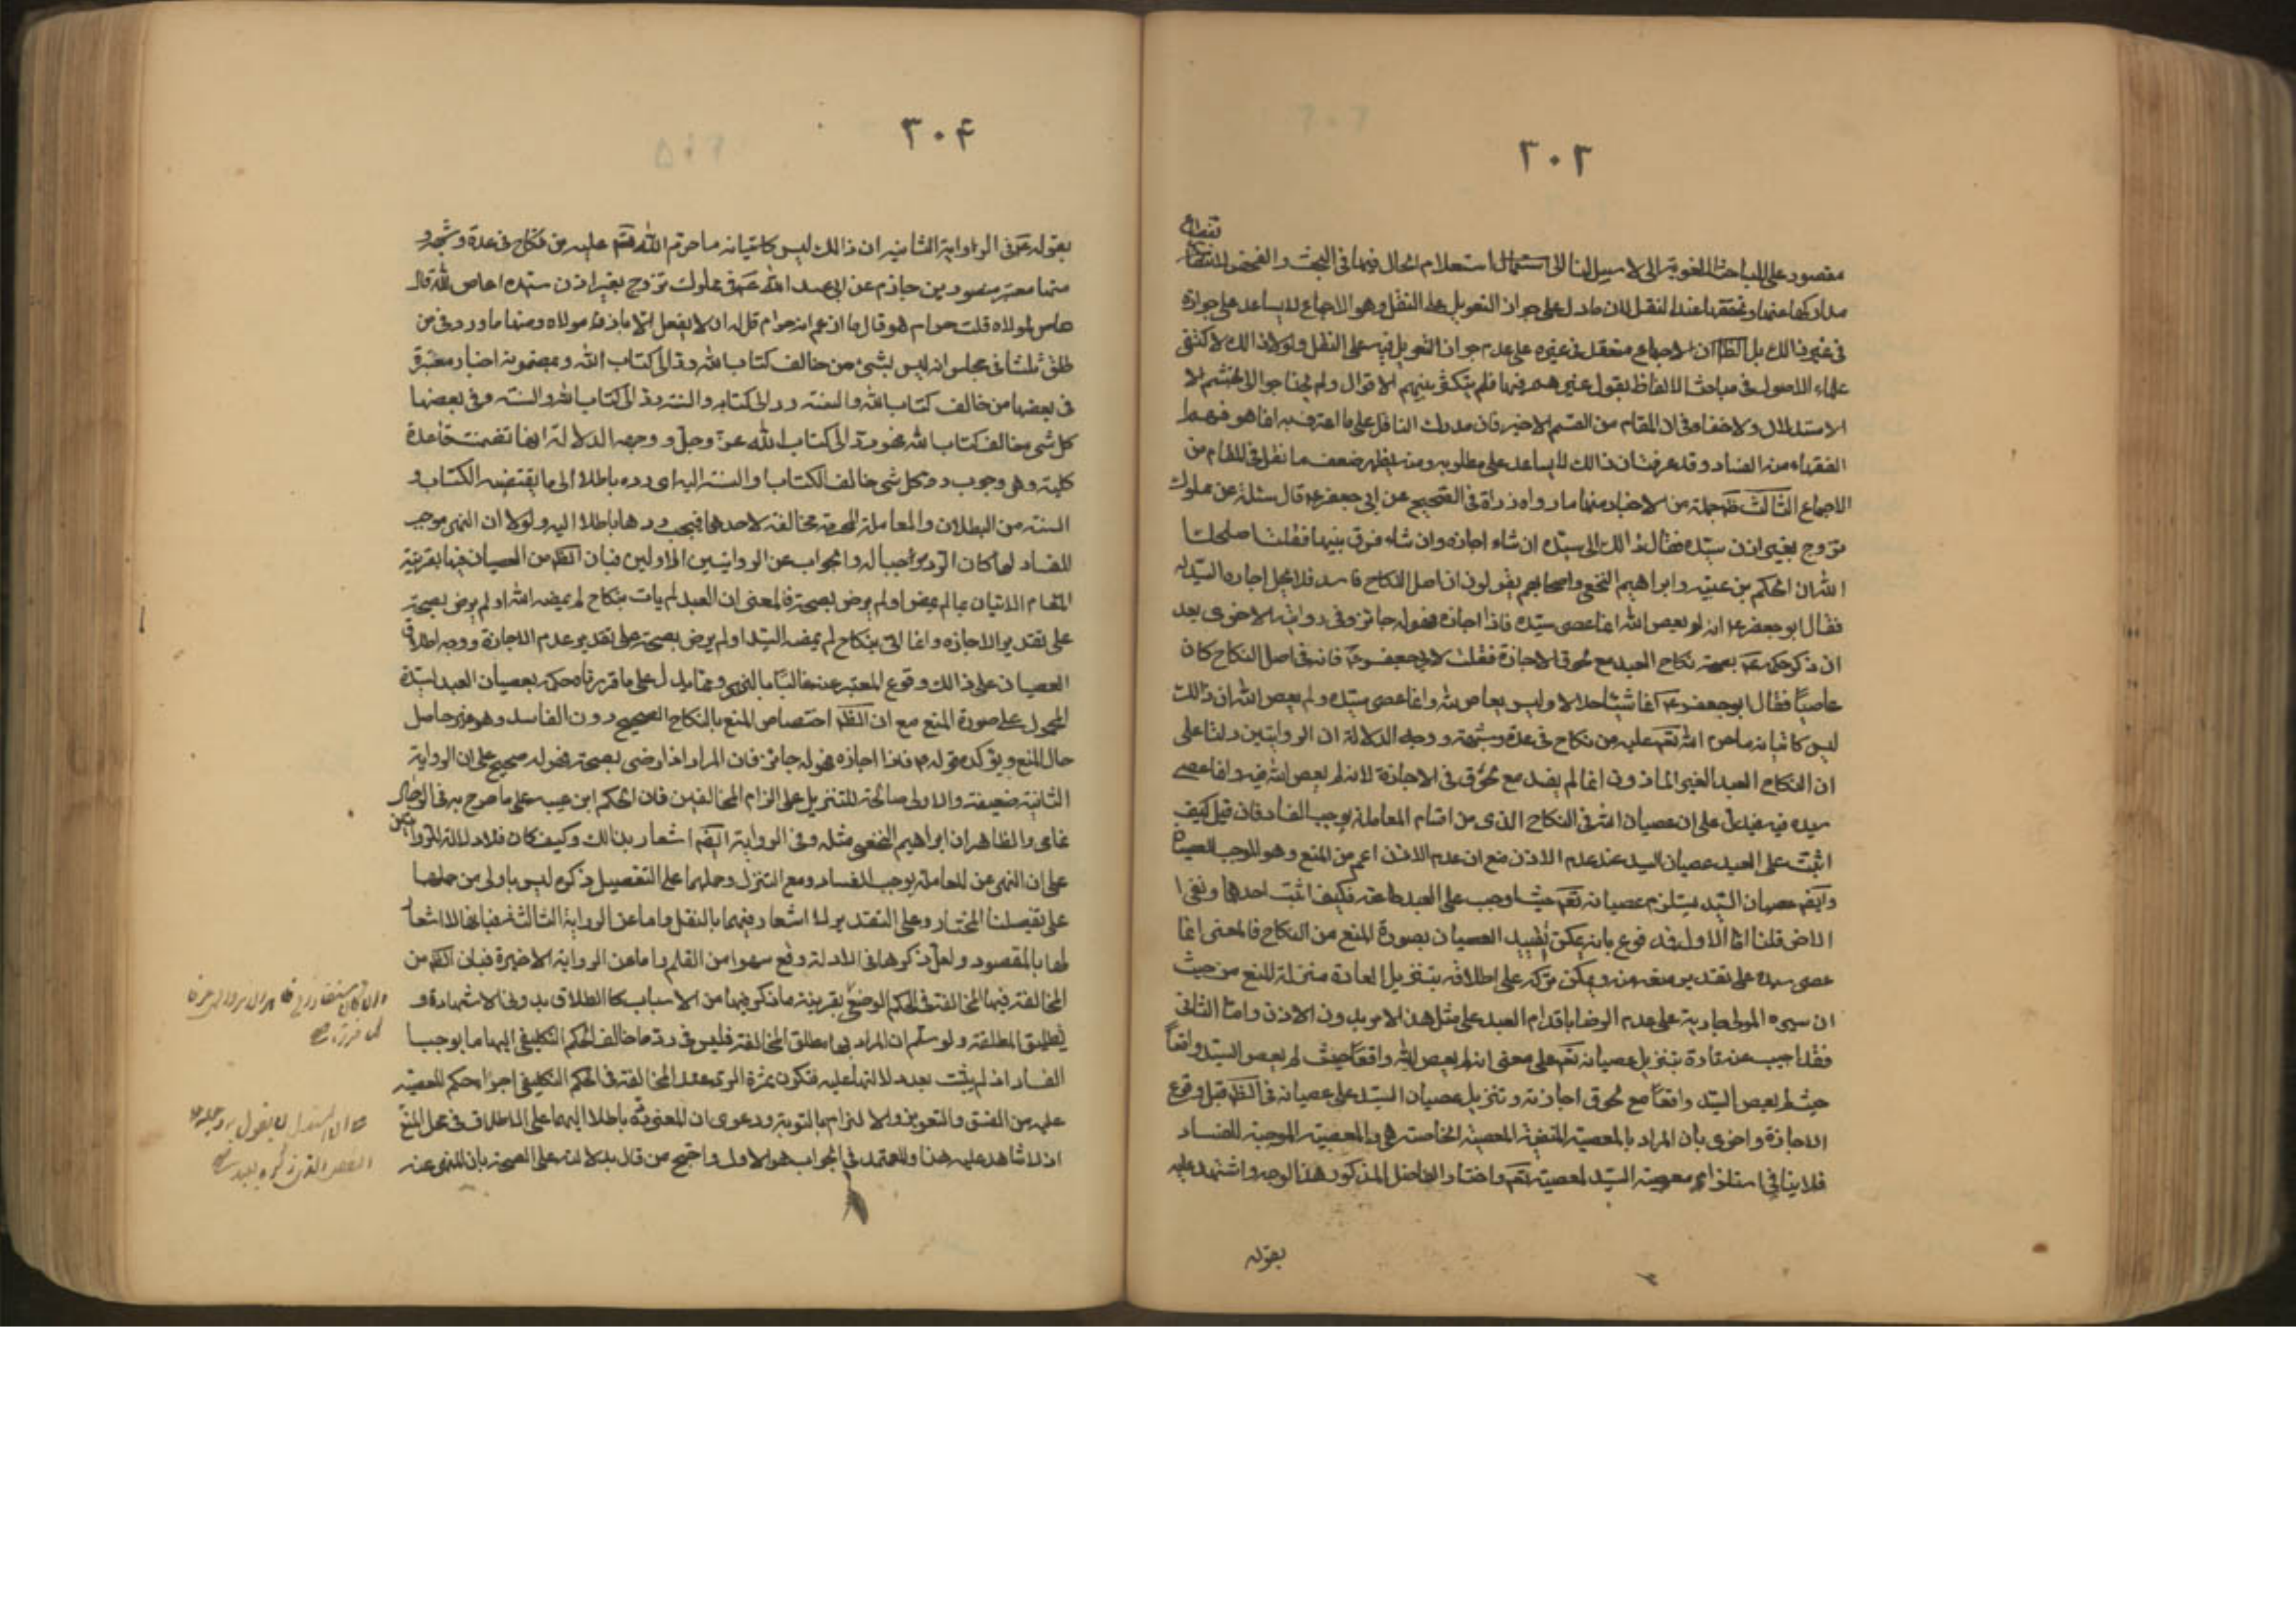 ٣٠٣
مقصور على المباحث اللغوية التي لا سبيل لنا الى استعلام الحال فيها في البحث والفحص
مداركها عنها وتحققها عند النقل لان ما دل على جواز التعويل على النقل وهو الاجماع لا يساعد على جوازه
في غير ذالك بل الظ ان الاجماع منعقد في غيره على عدم جواز التعويل فيه على النقل ولولا ذالك لاكتفى
علماء الاصول في مباحث الالفاظ بقول غيرهم فيها فلم يتكثر بينهم الاقوال ولم يحتاجوا الى تجشم الا
الاستدلال ولا خفاء في ان المقام من القسم الاخير فان مدرك الناقل على ما اعترف به انما هو فهم
الفقهاء من الفساد وقد عرفت ان ذالك لا يساعد على مطلوبه ومنه يظهر ضعف ما نقل في المقام من
الاجماع الثالث جملة من الاخبار منها ما رواه زرارة في الصحيح عن ابي جعفر ع قال سئلته عن مملوك
تزوج بغير اذن سيده فقال ذالك الى سيده ان شاء اجازه وان شاء فرق بينهما فقلت اصلحك
الله ان الحكم بن عيينه وابراهيم النخعي واصحابهم يقولون ان اصل النكاح فاسد فلا يحل اجازه السيد له
فقال ابو جعفر ع انه لم يعص الله انما عصى سيده فاذا اجازه فهو له جائز وفي روايته الاخرى بعد
ان ذكر حكمه ع بصحة نكاح العبد مع لحوق الاجازة فقلت لابي جعفر ع فانه في اصل النكاح كان
عاصيًا فقال ابو جعفر ع انما اتى شيئا حلالا وليس بعاص لله وانما عصى سيده ولم يعص الله ان ذالك
ليس كاتيانه ما حرم الله تعم عليه من نكاح في عدة وشبهه ووجه الدلالة ان الروايتين دلتا على
ان النكاح العبد الغير الماذون انما لم يفسد مع لحوق الاجازة لانه لم يعص الله فيه وانما عصى
سيده فيه فيدل على ان عصيان الله في النكاح الذي من اقسام المعاملة يوجب الفساد فان قيل كيف
اثبت على العبد عصيان السيد عند عدم الاذن مع ان عدم الاذن اعم من المنع وهو الموجب للعصيان
وايضم عصيان السيد يستلزم عصيانه تعم حيث اوجب على العبد طاعته فكيف اثبت احدهما ونفى ا
الاخر قلنا اما الاول فمدفوع بانه يمكن تقييد العصيان بصورة المنع من النكاح فالمعنى انما
عصى سيده على تقدير منعه منه ويمكن تركه على اطلاقه بتنزيل العادة منزلة المنع من حيث
ان سيره المولى جارية على عدم الرضا باقدام العبد على مثل هذا الامر بدون الاذن واما الثاني
فقد اجيب عنه تارة بتنزيل عصيانه تعم على معنى انه لم يعص الله واقعًا حيث لم يعص السيد واقعاً
حيث لم يعص السيد واقعًا مع لحوق اجازته وتنزيل عصيان السيد على عصيانه في الظم قبل وقوع
الاجازة واخرى بان المراد بالمعصية المنفية المعصية الخاصة هي المعصية الموجبة للفساد
فلا ينافي استلزام معصية السيد لمعصيته تعم واختار الفاضل المذكور هذا الوجه واستشهد عليه
بقوله
٣٠۴
بقوله ع في الرواية الثانيه ان ذالك ليس كاتيانه ما حرم الله تعم عليه من نكاح في عدة وشبهه و
منها معتبر منصور بن حازم عن ابي عبد الله ع في مملوك تزوج بغير اذن سيده اعاص لله قال
عاص لمولاه قلت حرام هو قال ما ازعم انه حرام قل له ان لا يفعل الا باذن مولاه ومنها ما ورد في من
طلق ثلثا في مجلس انه ليس بشئ من خالف كتاب الله رد الى كتاب الله وبمضمونه اخبار معتبرة
في بعضها من خالف كتاب الله والسنة رد الى كتابه والسنه رد الى كتاب الله والسنه وفي بعضها
كل شئ خالف كتاب الله فهو رد الى كتاب الله عز وجل ووجه الدلالة انها تضمنت قاعدة
كلية وهي وجوب رد كل شئ خالف الكتاب او السنة اليه اى رده باطلا الى ما يقتضيه الكتاب و
السنه من البطلان والمعاملة المحرمة مخالفة لاحدهما فيجب ردها باطلا اليه ولولا ان النهي موجب
للفساد لما كان الرد موجبا له والجواب عن الروايتين الاولين فبان الظم من العصيان فيها بقرينة
المقام الاتيان بما لم يمض او لم يرض بصحته فالمعنى ان العبد لم يات بنكاح لم يمضه الله او لم يرض بصحته
على تقدير الاجازه وانما اتى بنكاح لم يمضه السيد او لم يرض بصحته على تقدير عدم الاجازة ووجه اطلاق
العصيان على ذالك وقوع المعتبر عنه غالبًا بالنهي ومما يدل على ما قررناه حكمه بعصيان العبد لسيده
المحمول على صورة المنع مع ان الظم اختصاص المنع بالنكاح الصحيح دون الفاسد وهو غير حاصل
حال المنع ويؤكده قوله ع فاذا اجازه فهو له جائز فان المراد اذا رضى بصحته فهو له صحيح على ان الرواية
الثانية ضعيفة والاولى صالحة للتنزيل على الزام المخالفين فان الحكم ابن عيينه على ما صرح به في الرجال
عامي والظاهر ان ابراهيم النخعي مثله وفي الرواية ايضم اشعار بذالك وكيف كان فلا دلالة للروايتين
على ان النهي عن المعاملة يوجب الفساد ومع التنزل وحملهما على التفصيل ذكره ليس باولى من حملهما
على تفصيلنا المختار وعلى التقديرين لا اشعار فيهما بالنقل واما عن الرواية الثالثة فبانها لا اشعار
لها بالمقصود ولعل ذكرها في الادلة وقع سهوا من القلم واما عن الرواية الاخيرة فبان الظم من
المخالفة فيها المخالفة في الحكم الوضعي بقرينة ما ذكر فيها من الاسباب كالطلاق بدون الاشهاد و
تطليق المطلقة ولو سلم ان المراد بها مطلق المخالفة فليس في رد ما خالف الحكم التكليفي اليهما ما يوجب
الفساد اذ لم يثبت بعد دلالتهما عليه فتكون ثمرة الرد عند المخالفة في الحكم التكليفي اجراء حكم المعصية
عليه من الفسق والتعزير والالزام بالتوبة ودعوى ان المعنى رده باطلا اليهما على الاطلاق في محل المنع
اذ لا شاهد عليه هنا والمعتمد في الجواب هو الاول واحتج من قال بدلالته على الصحة بان المنهي عنه